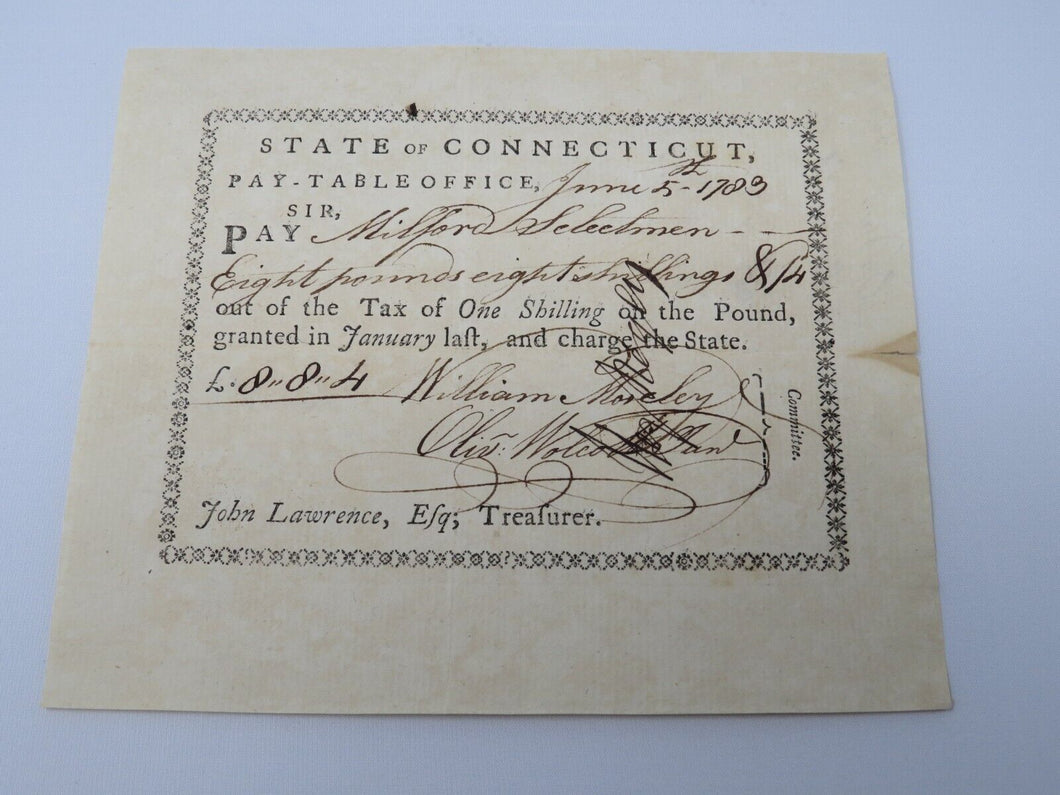 STATE OF CONNECTICUT,
PAY-TABLE OFFICE, June 5th 1783
SIR,
PAY Milford Selectmen
Eight pounds eight shillings & /4
out of the Tax of One Shilling on the Pound,
granted in January laſt, and charge the State.
£. 8" 8" 4 William Moseley
Olivr. Wolcott Junr
Committee.
John Lawrence, Eſq; Treaſurer.